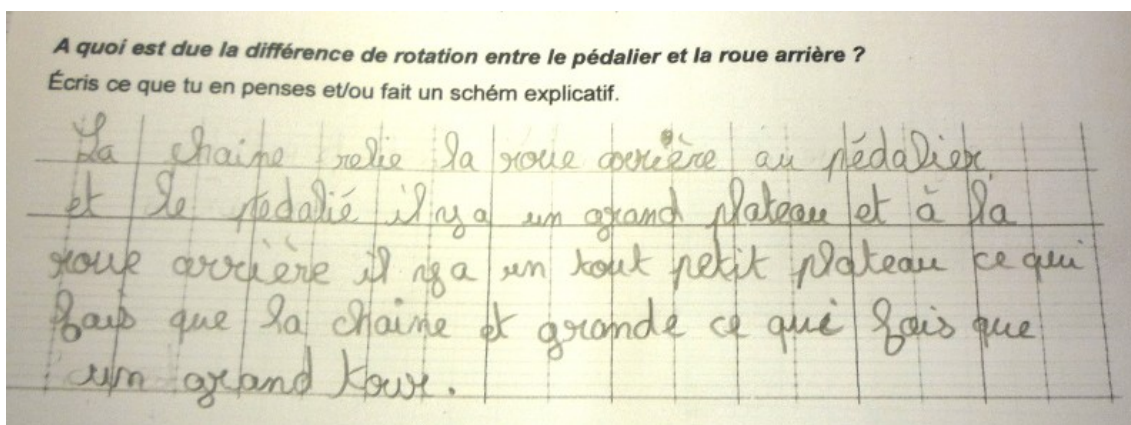 A quoi est due la différence de rotation entre le pédalier et la roue arrière ?
Écris ce que tu en penses et/ou fait un schém explicatif.
La chaine relie la roue arrière au pédalier
et le pédalié il nya un grand plateau et à la
roue arrière il nya un tout petit plateau ce qui
fais que la chaine et grande ce qui fais que
um grand tour.